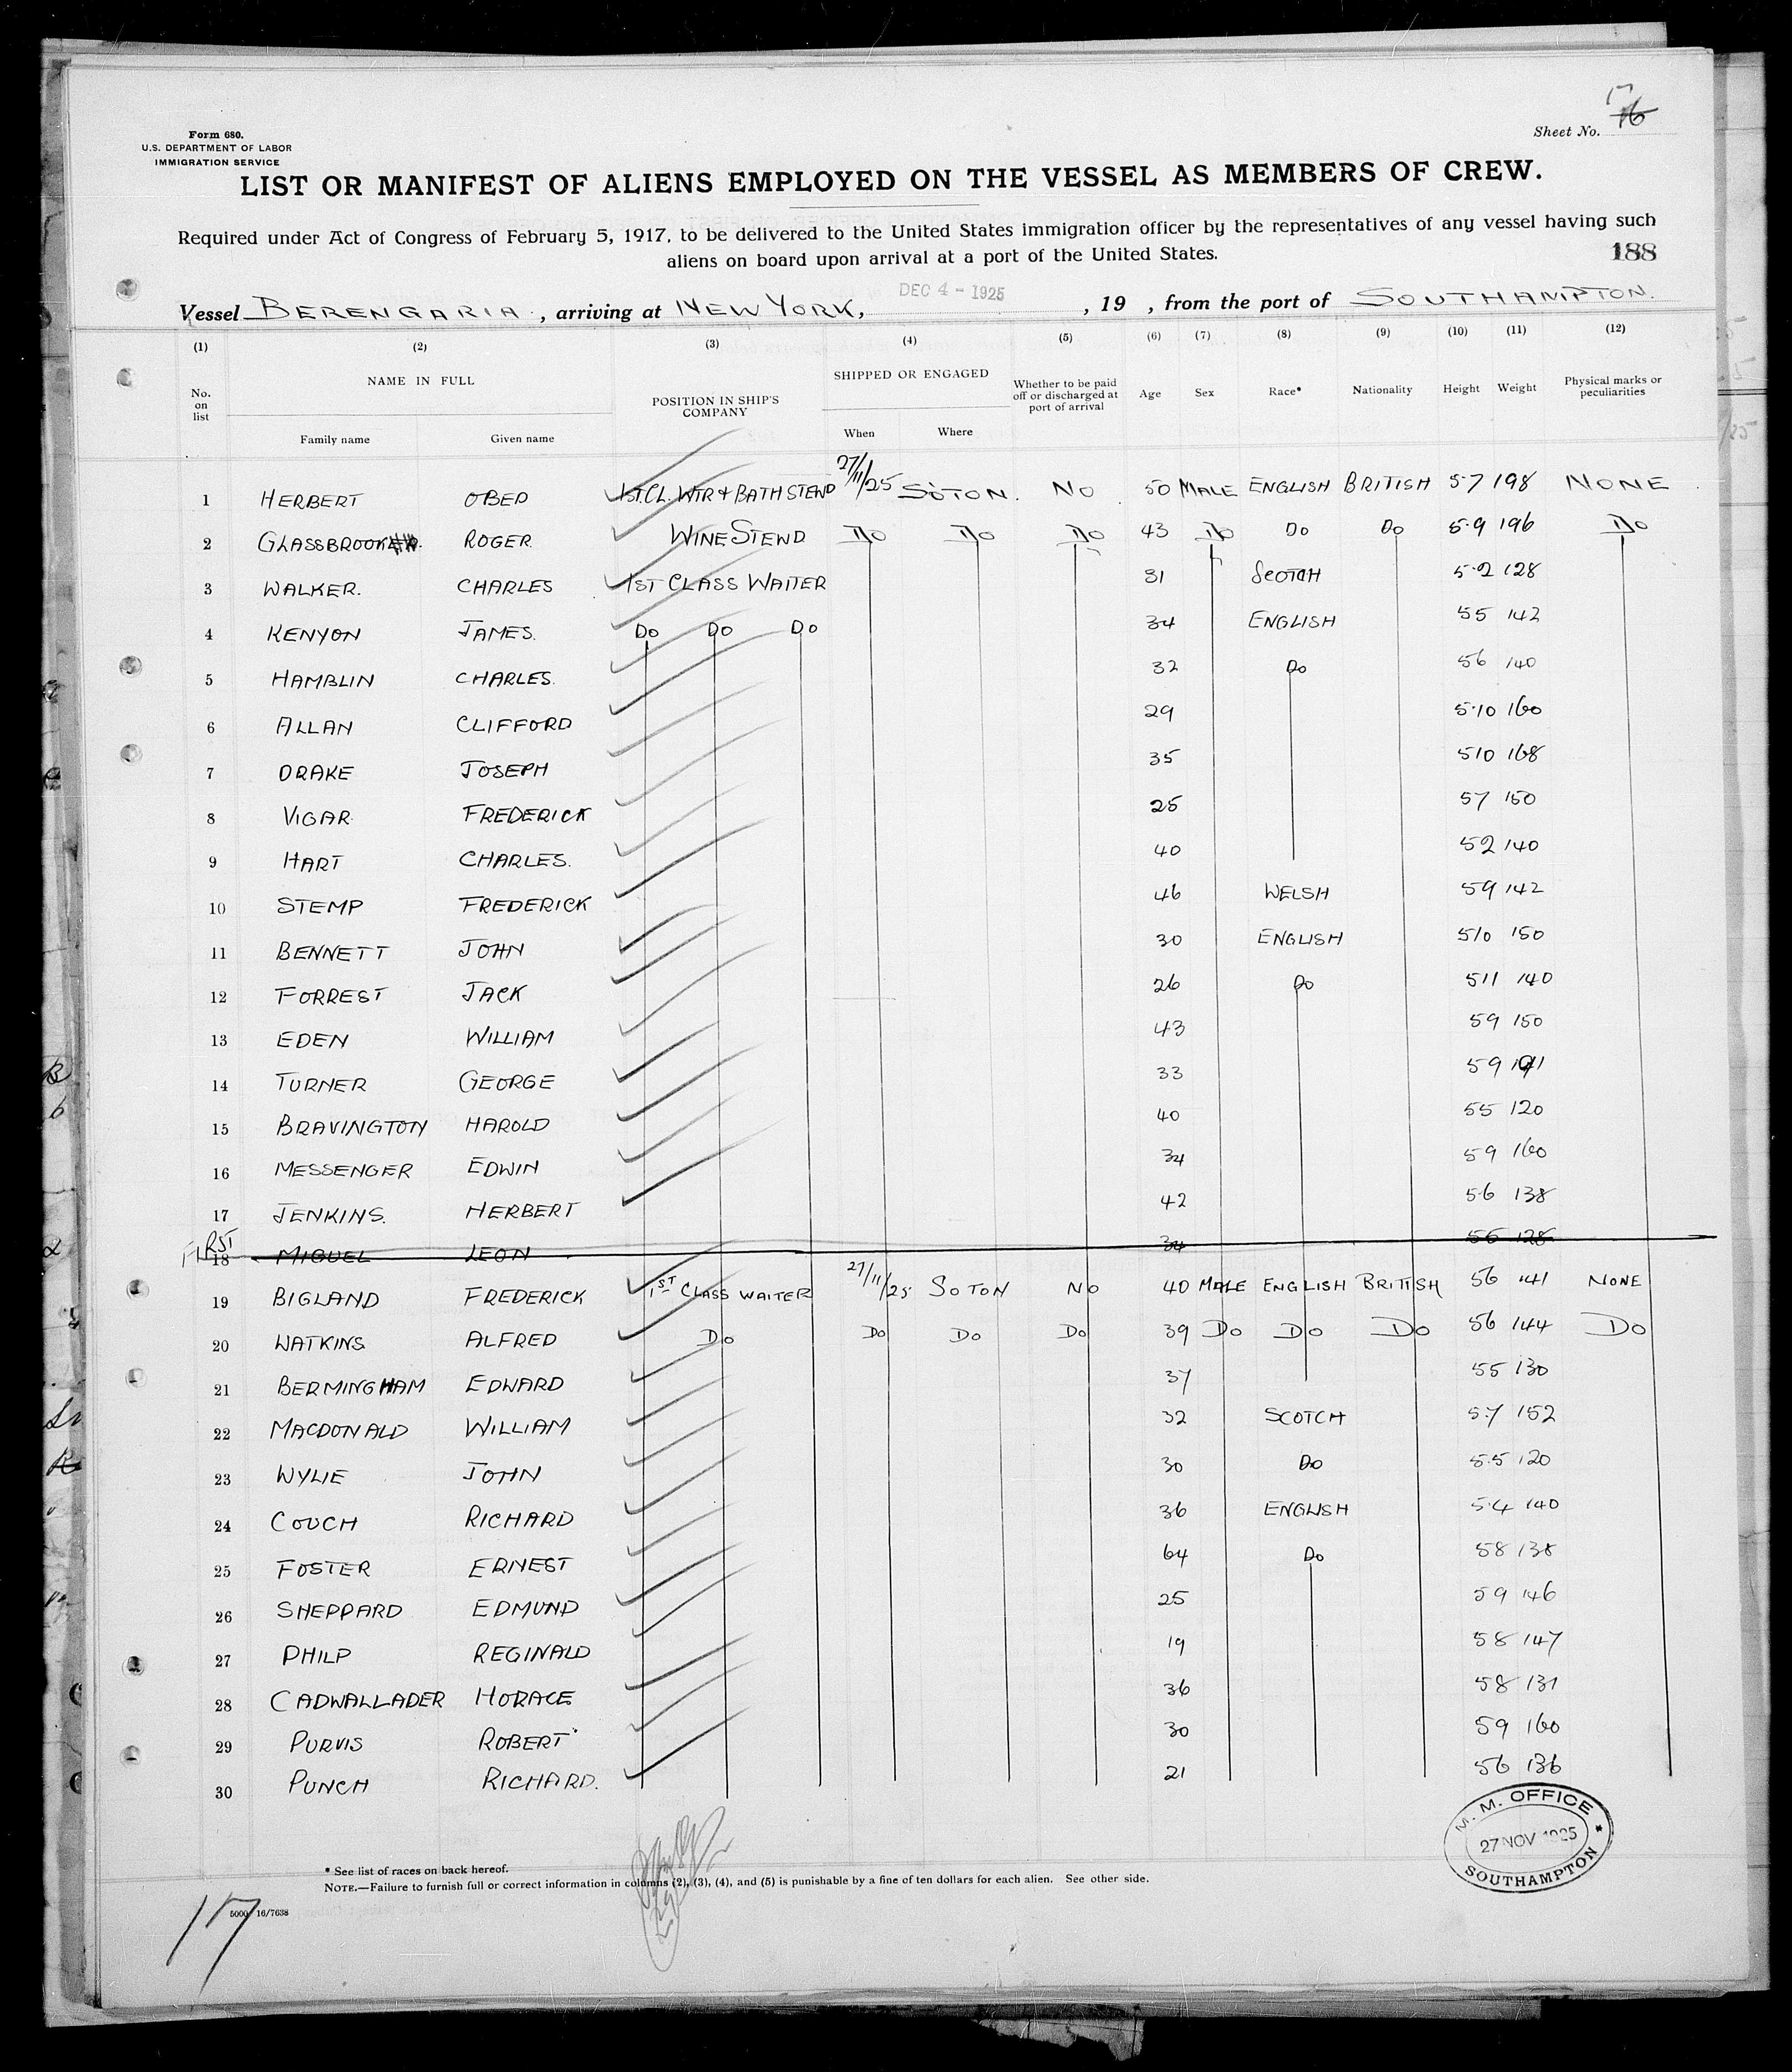 Form 680.
U.S. DEPARTMENT OF LABOR
IMMIGRATION SERVICE
17
Sheet No. 16
LIST OR MANIFEST OF ALIENS EMPLOYED ON THE VESSEL AS MEMBERS OF CREW.
Required under Act of Congress of February 5, 1917, to be delivered to the United States immigration officer by the representatives of any vessel having such
aliens on board upon arrival at a port of the United States.
188
Vessel BERENGARIA, arriving at NEW YORK, DEC 4 - 1925, 19 , from the port of SOUTHAMPTON.
(1) (2) (3) (4) (5) (6) (7) (8) (9) (10) (11) (12)
No. on list NAME IN FULL POSITION IN SHIP'S COMPANY SHIPPED OR ENGAGED Whether to be paid off or discharged at port of arrival Age Sex Race* Nationality Height Weight Physical marks or peculiarities
Family name Given name When Where
1 HERBERT OBED 1ST. CL. WTR & BATH STEWD 27/11/25 SOTON. NO 50 MALE ENGLISH BRITISH 5-7 198 NONE
2 GLASSBROOK ROGER. WINE STEWD DO DO DO 43 DO DO DO 5-9 196 DO
3 WALKER. CHARLES 1ST CLASS WAITER 31 SCOTCH 5-2 128
4 KENYON JAMES. DO DO DO 34 ENGLISH 55 142
5 HAMBLIN CHARLES. 32 DO 56 140
6 ALLAN CLIFFORD 29 5-10 160
7 DRAKE JOSEPH 35 510 168
8 VIGAR FREDERICK 25 57 150
9 HART CHARLES. 40 52 140
10 STEMP FREDERICK 46 WELSH 59 142
11 BENNETT JOHN 30 ENGLISH 510 150
12 FORREST JACK 26 DO 511 140
13 EDEN WILLIAM 43 59 150
14 TURNER GEORGE 33 59
15 BRAVINGTON HAROLD 40 55 120
16 MESSENGER EDWIN 34 59 160
17 JENKINS. HERBERT 42 56 138
18 MIGUEL LEON 34 56 128
19 BIGLAND FREDERICK 1ST CLASS WAITER 27/11/25 SOTON NO 40 MALE ENGLISH BRITISH 56 141 NONE
20 WATKINS ALFRED DO DO DO DO 39 DO DO DO 56 144 DO
21 BERMINGHAM EDWARD 37 55 130
22 MACDONALD WILLIAM 32 SCOTCH 5.7 152
23 WYLIE JOHN 30 DO 5.5 120
24 COUCH RICHARD 36 ENGLISH 5-4 140
25 FOSTER ERNEST 64 DO 58 138
26 SHEPPARD EDMUND 25 59 146
27 PHILP REGINALD 19 58 147
28 CADWALLADER HORACE 36 58 131
29 PURVIS ROBERT 30 59 160
30 PUNCH RICHARD. 21 56 136
M. M. OFFICE
27 NOV 1925
SOUTHAMPTON
* See list of races on back hereof.
NOTE.—Failure to furnish full or correct information in columns (2), (3), (4), and (5) is punishable by a fine of ten dollars for each alien. See other side.
5000 16/7638
117